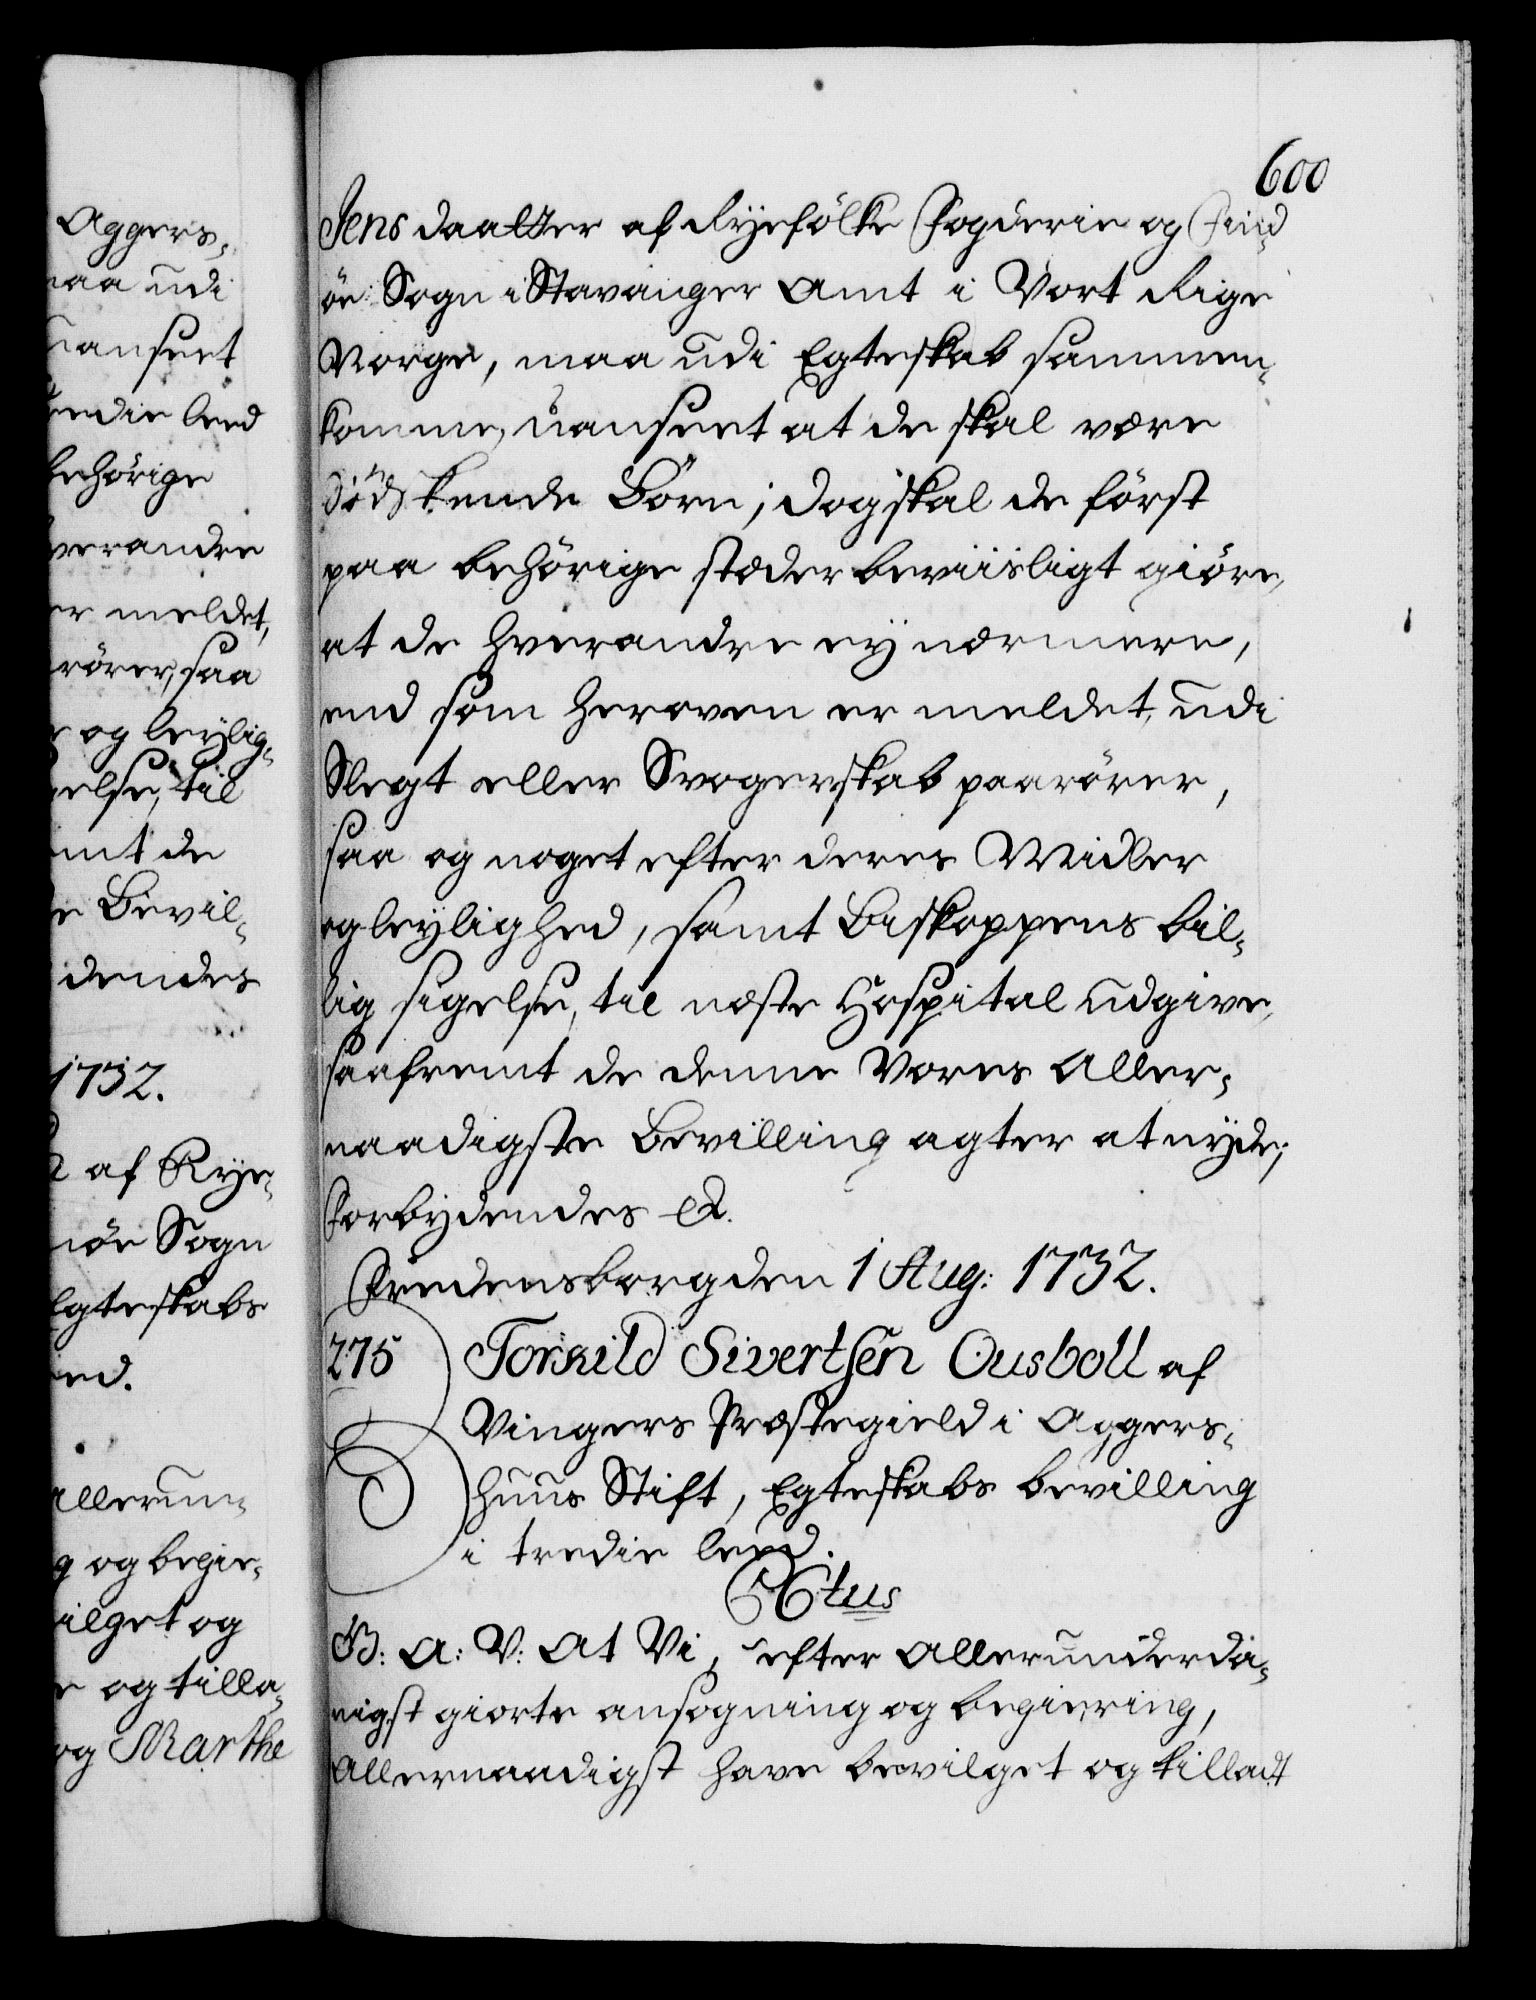 Aggers-
maa udi
uanseet
tredie leed
behörige
hverandre
er meldet,
rörer, saa
og leylig-
gelse, til
samt de
Bevil-
dendes
1732.
af Rye-
nöe Sogn
Egteskabs
leed.
allerun-
og begie-
vilget og
og tilla-
og Marthe
600
Jens daatter af Ryefölke Fogderie og Find-
öe Sogn i Stavanger Amt i Vort Rige
Norge, maa udi Egteskab sammen-
komme, uanseet at de skal være
Södskende Börn; dog skal de först
paa behörige stæder beviisligt giöre,
at de hverandre ey nærmere,
end som heroven er meldet, udi
Slegt eller Svogerskab paarörer,
saa og noget efter deres Midler
og leylighed, samt Biskoppens bil-
lig sigelse, til næste Hospital udgive,
saafremt de denne Vores Aller-
naadigste Bevilling agter at nyde;
Forbydendes &.
Fredensborg den 1 Aug: 1732.
275 Torkild Sivertsen Ousboll af
Vingers Præstegield i Aggers-
huus Stift, Egteskabs bevilling
i tredie leed.
C 6tus
G: A: V: At Vi, efter Allerunderda-
nigst giorte ansogning og begiering,
Allernaadigst have bevilget og tilladt